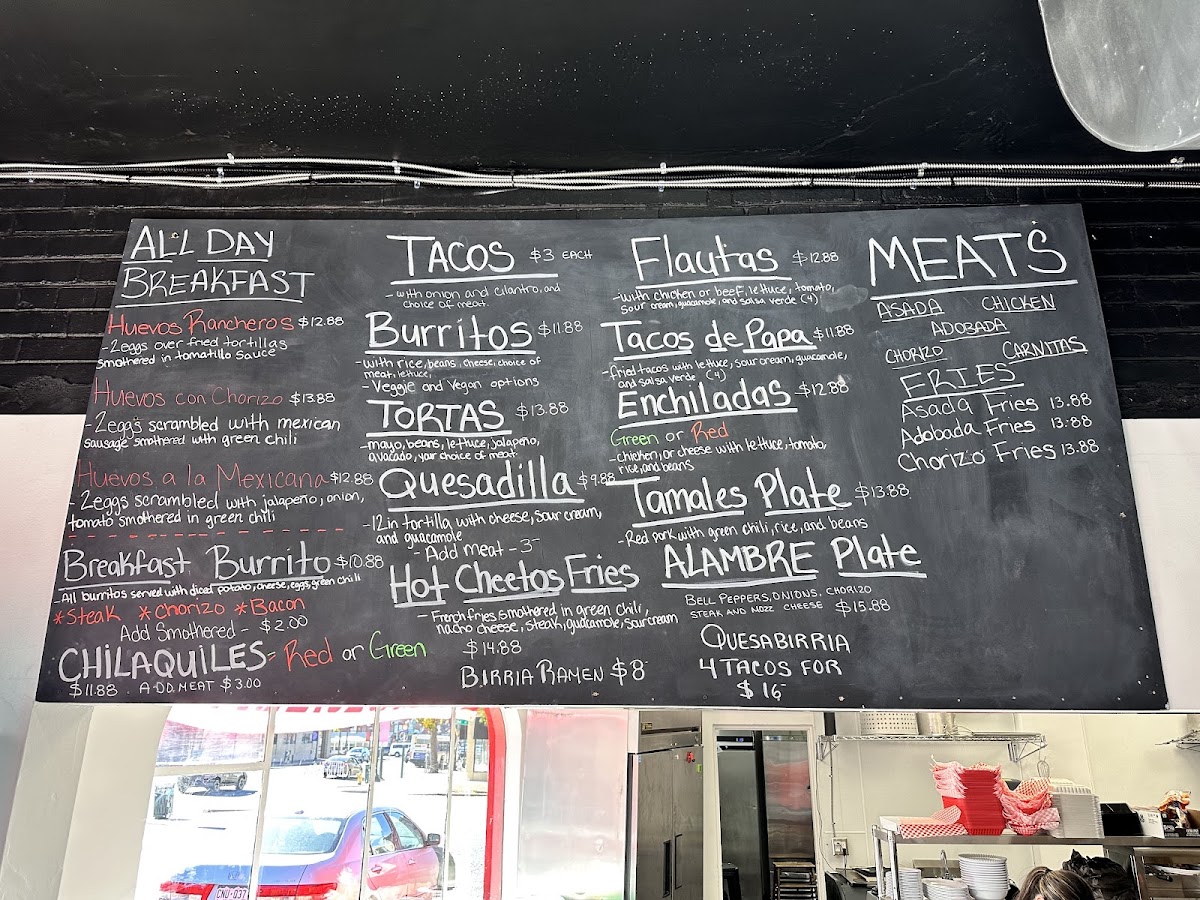 ALL DAY
BREAKFAST
Huevos Rancheros $12.88
- 2eggs over fried tortillas
smothered in tomatillo sauce
Huevos con Chorizo $13.88
- 2eggs scrambled with mexican
sausage smothered with green chili
Huevos a la Mexicana $12.88
- 2eggs scrambled with jalapeño, onion,
tomato smothered in green chili
Breakfast Burrito $10.88
- All burritos served with diced potato, cheese, eggs, green chili
*Steak *Chorizo *Bacon
Add Smothered - $2.00
CHILAQUILES - Red or Green
$11.88 . ADD. MEAT $3.00
TACOS $3 EACH
- with onion and cilantro, and
choice of meat.
Burritos $11.88
- with rice, beans, cheese, choice of
meat, lettuce,
- Veggie and Vegan options
TORTAS $13.88
- mayo, beans, lettuce, jalapeño,
avocado, your choice of meat
Quesadilla $9.88
- 12in tortilla with cheese, sour cream,
and guacamole
- Add meat - 3-
Hot Cheetos Fries
- French fries, smothered in green chili,
nacho cheese, steak, guacamole, sour cream
$14.88
BIRRIA RAMEN $8-
Flautas $12.88
- with chicken or beef, lettuce, tomato,
sour cream, guacamole, and salsa verde (4)
Tacos de Papa $11.88
- fried tacos with lettuce, sour cream, guacamole,
and salsa verde (4)
Enchiladas $12.88
Green or Red
- chicken, or cheese with lettuce, tomato,
rice, and beans
Tamales Plate $13.88
- Red pork with green chili, rice, and beans
ALAMBRE Plate
BELL PEPPERS, ONIONS, CHORIZO
STEAK AND MOZZ CHEESE $15.88
QUESABIRRIA
4 TACOS FOR
$16-
MEATS
ASADA CHICKEN
ADOBADA
CHORIZO CARNITAS
FRIES
Asada Fries 13.88
Adobada Fries 13.88
Chorizo Fries 13.88